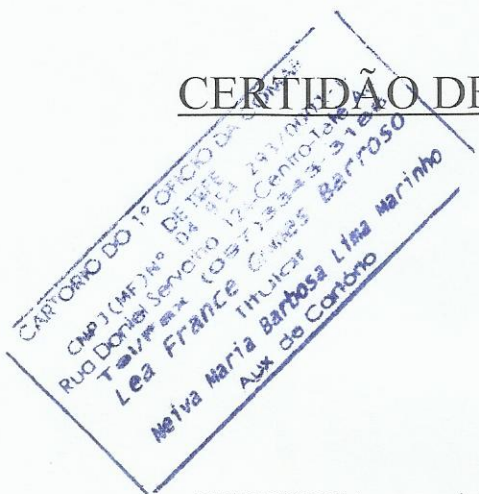 CERTIDÃO DE
CARTORIO DO 1º OFICIO DA
CNPJ (MF) Nº 04
DE TEFE
Rua Daniel Servalho 12 - Centro - Tefe
(097) 3343-3162
Lea France Barroso
Titular
Neiva Maria Barbosa Lima Marinho
Aux de Cartório